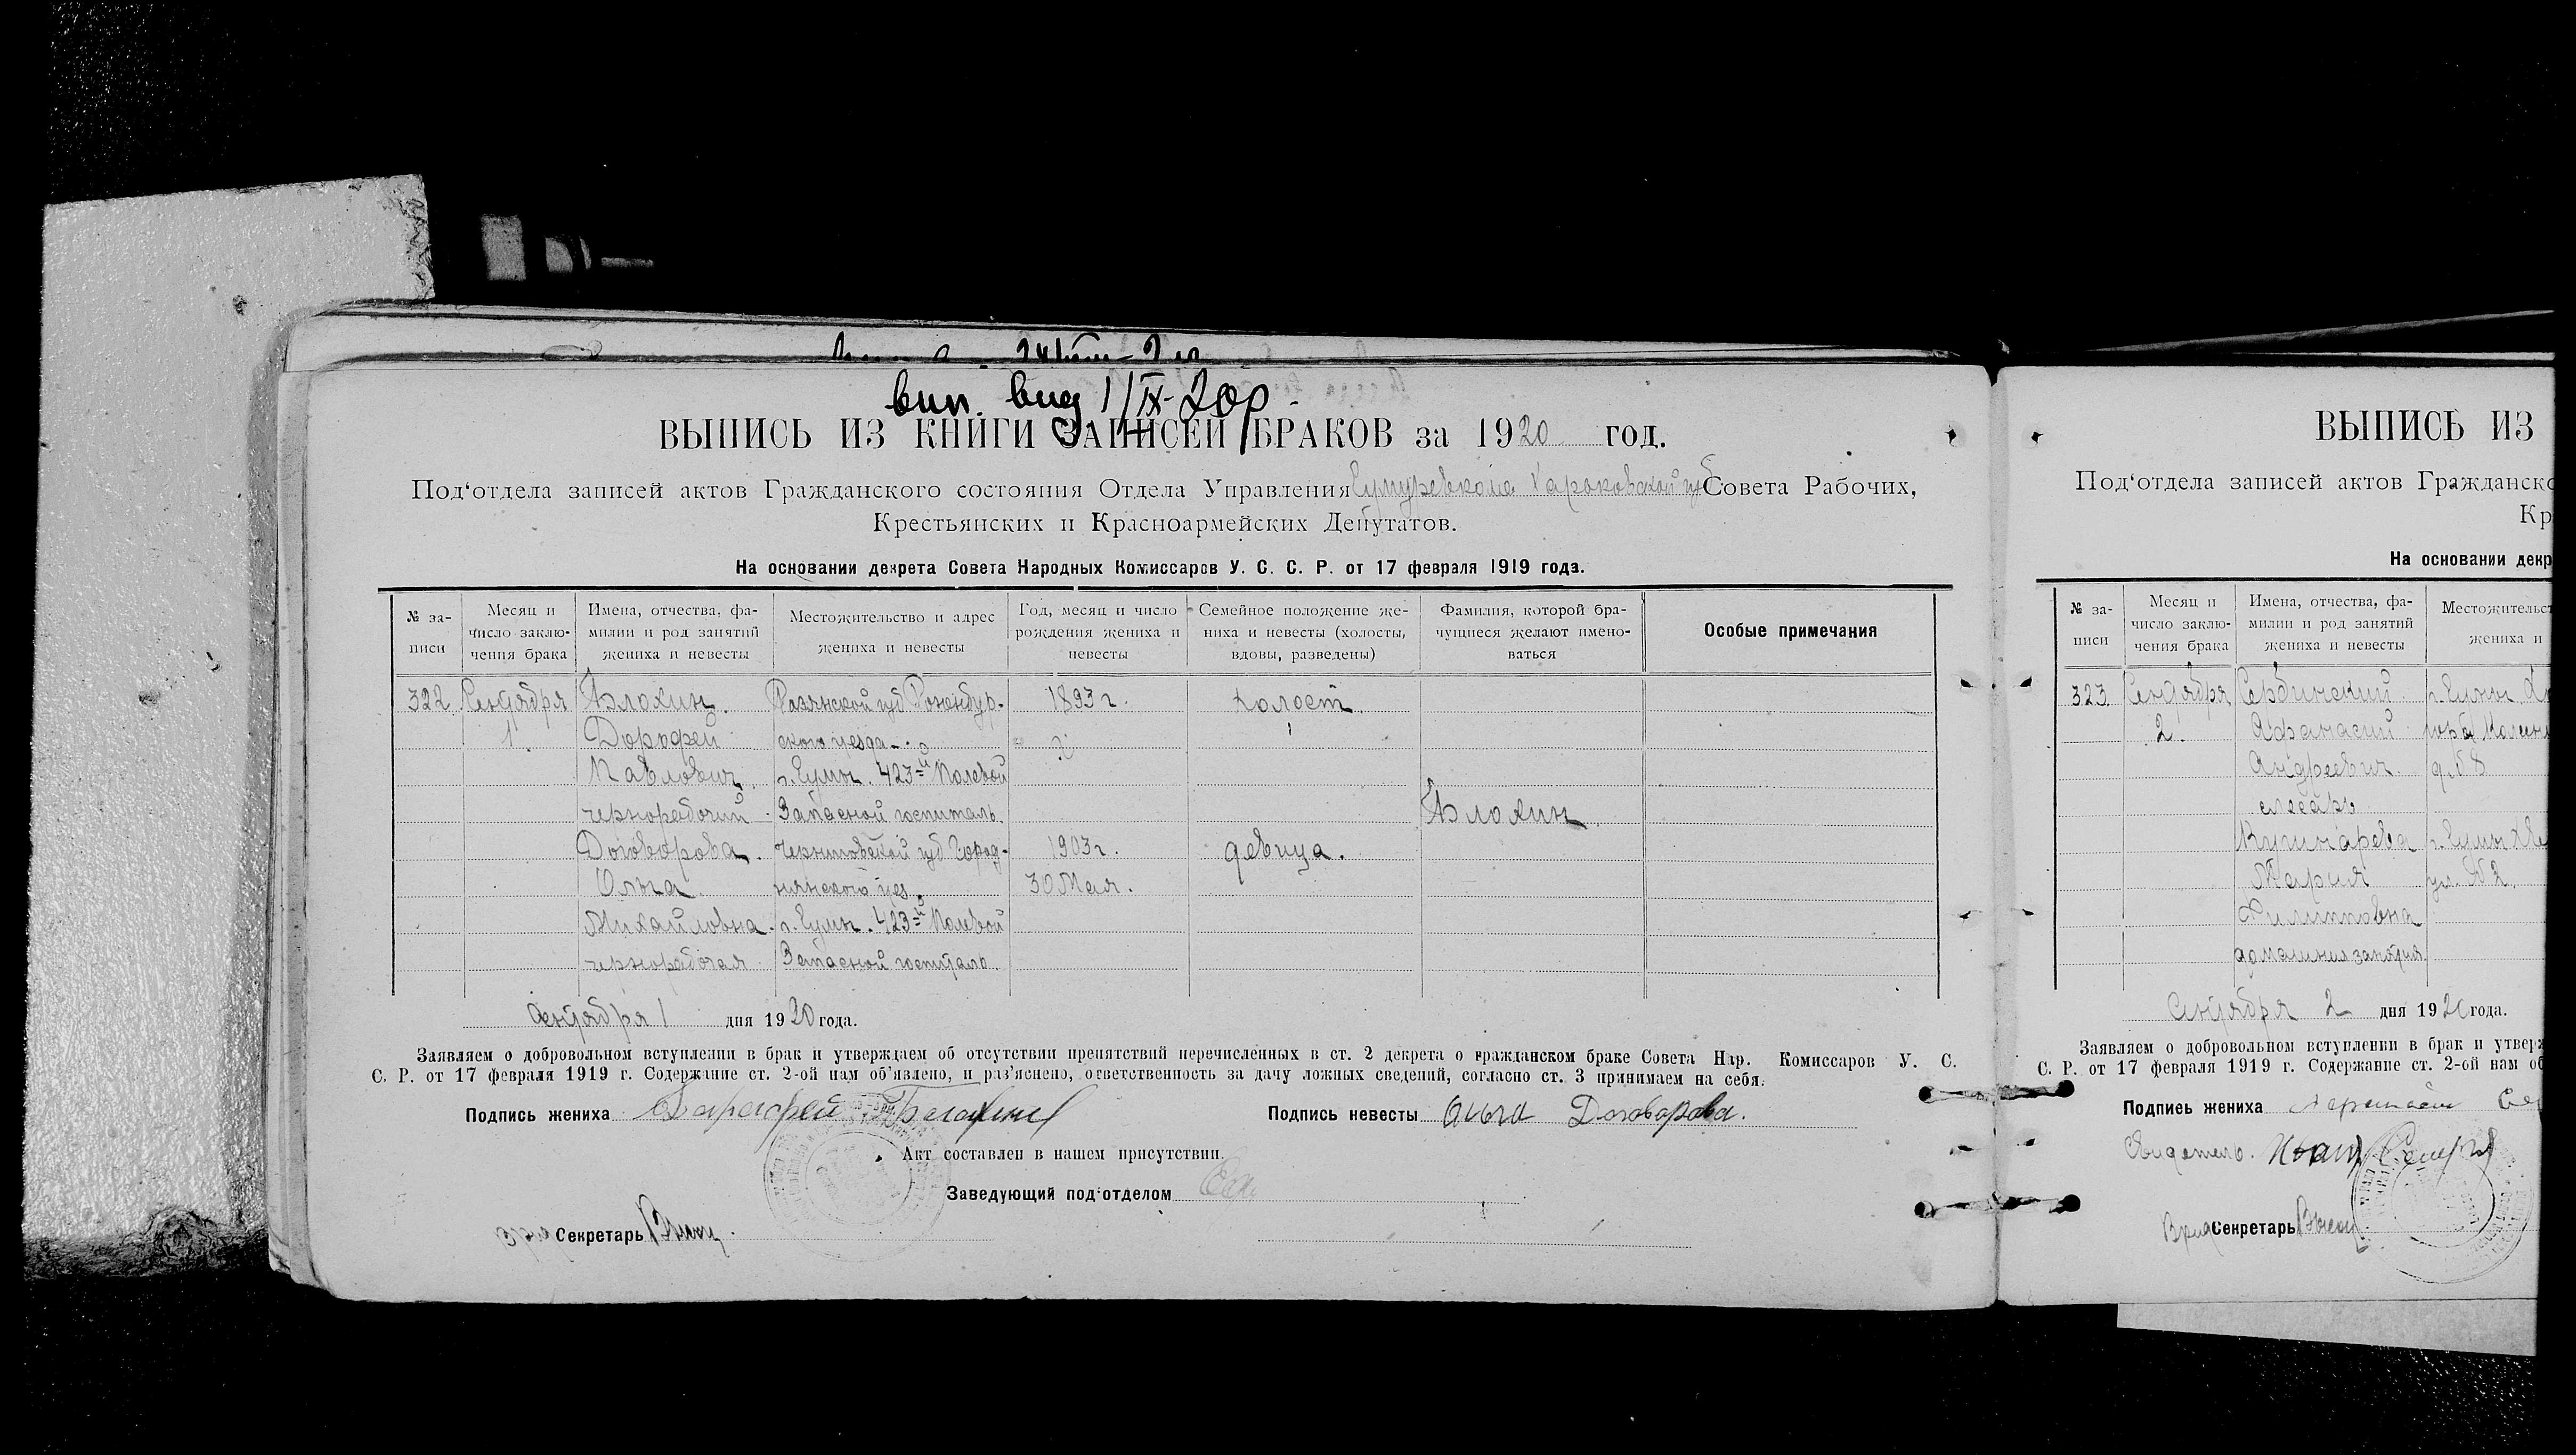 вип. вид 1/IX-20р.
ВЫПИСЬ ИЗ КНИГИ ЗАПИСЕЙ БРАКОВ за 1920 год.
Под‘отдела записей актов Гражданского состояния Отдела Управления Харьковской губ Совета Рабочих,
Крестьянских и Красноармейских Депутатов.
На основании декрета Совета Народных Комиссаров У. С. С. Р. от 17 февраля 1919 года.
№ за-писи
Месяц и число заклю-чения брака
Имена, отчества, фа-милии и род занятий жениха и невесты
Местожительство и адрес жениха и невесты
Год, месяц и число рождения жениха и невесты
Семейное положение же-ниха и невесты (холосты, вдовы, разведены)
Фамилия, которой бра-чущиеся желают имено-ваться
Особые примечания
322 Сентября Блохин. Рязанской губ Раненбур- 1893 г. холост.
1. Дорофей ского уезда
Павлович г. Сумы. 423-й Полевой
чернорабочий Запасной госпиталь. Блохин
Договорова. Черниговской губ Город- 1903 г. девица.
Ольга нянского уез. 30 Мая.
Михайловна. г. Сумы. 423-й Полевой
чернорабочая Запасной госпиталь.
Сентября 1 дня 1920 года.
Заявляем о добровольном вступлении в брак и утверждаем об отсутствии препятствий перечисленных в ст. 2 декрета о гражданском браке Совета Нар. Комиссаров У. С.
С. Р. от 17 февраля 1919 г. Содержание ст. 2-ой нам об’явлено, и раз’яснено, ответственность за дачу ложных сведений, согласно ст. 3 принимаем на себя.
Подпись жениха Дарафей Блахин
Подпись невесты Ольга Договорова.
Акт составлен в нашем присутствии.
Заведующий под‘отделом
Секретарь
ВЫПИСЬ ИЗ
Под‘отдела записей актов Гражданско
Кр
На основании декр
№ за-писи
Месяц и число заклю-чения брака
Имена, отчества, фа-милии и род занятий жениха и невесты
Местожительст
жениха и
323. Сентября Сербинский г. Сумы
2. Афанасий
Андреевич д. № 8
слесарь
Кушнарева г. Сумы
Мария ул. № 2
Филипповна
домашния занятия
Сентября 2 дня 1920 года.
Заявляем о добровольном вступлении в брак и утвер
С. Р. от 17 февраля 1919 г. Содержание ст. 2-ой нам об
Подпись жениха
Свидетель. Иван
Врид Секретарь